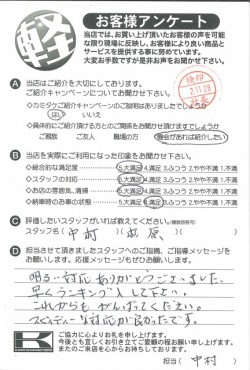 軽
お客様アンケート
当店では、お買い上げ頂いたお客様の声を可能な限り現場に反映し、お客様により良い商品とサービスを提供する事に努めております。
大変お手数ですが是非お声をお聞かせ下さい。
A 当店はご紹介を大切にしております。
ご紹介キャンペーンについてお聞かせ下さい。
◇カミタケご紹介キャンペーンのご説明はありましたでしょうか
はい いいえ
◇具体的にご紹介頂ける方とのご関係をお聞かせ頂けますでしょうか
ご親族 ご友人 職場の方 機会があれば紹介したい
B 当店を実際にご利用になった印象をお聞かせ下さい。
◇総合的な満足度 5.大満足 4.満足 3.ふつう 2.やや不満 1.不満
◇スタッフの対応 5.大満足 4.満足 3.ふつう 2.やや不満 1.不満
◇お店の雰囲気、清掃 5.大満足 4.満足 3.ふつう 2.やや不満 1.不満
◇納車時のお車の状態 5.大満足 4.満足 3.ふつう 2.やや不満 1.不満
C 評価したいスタッフがいれば教えてください。(複数回答可)
スタッフ名( 中村 )( 萩原 )
D 担当させて頂きましたスタッフへのご指摘、ご指導メッセージをお願いします。応援メッセージもぜひお願いします。
明るい対応ありがとうございました。
早くランキング入して下さい。
これからもがんばってください。
スピーディーな対応が良かったです。
K
ご協力に心よりお礼を申し上げます。
今後とも宜しくお引き立てご愛顧の程お願い申し上げます。
またのご来店を心からお待ちしております。
担当( 中村 )